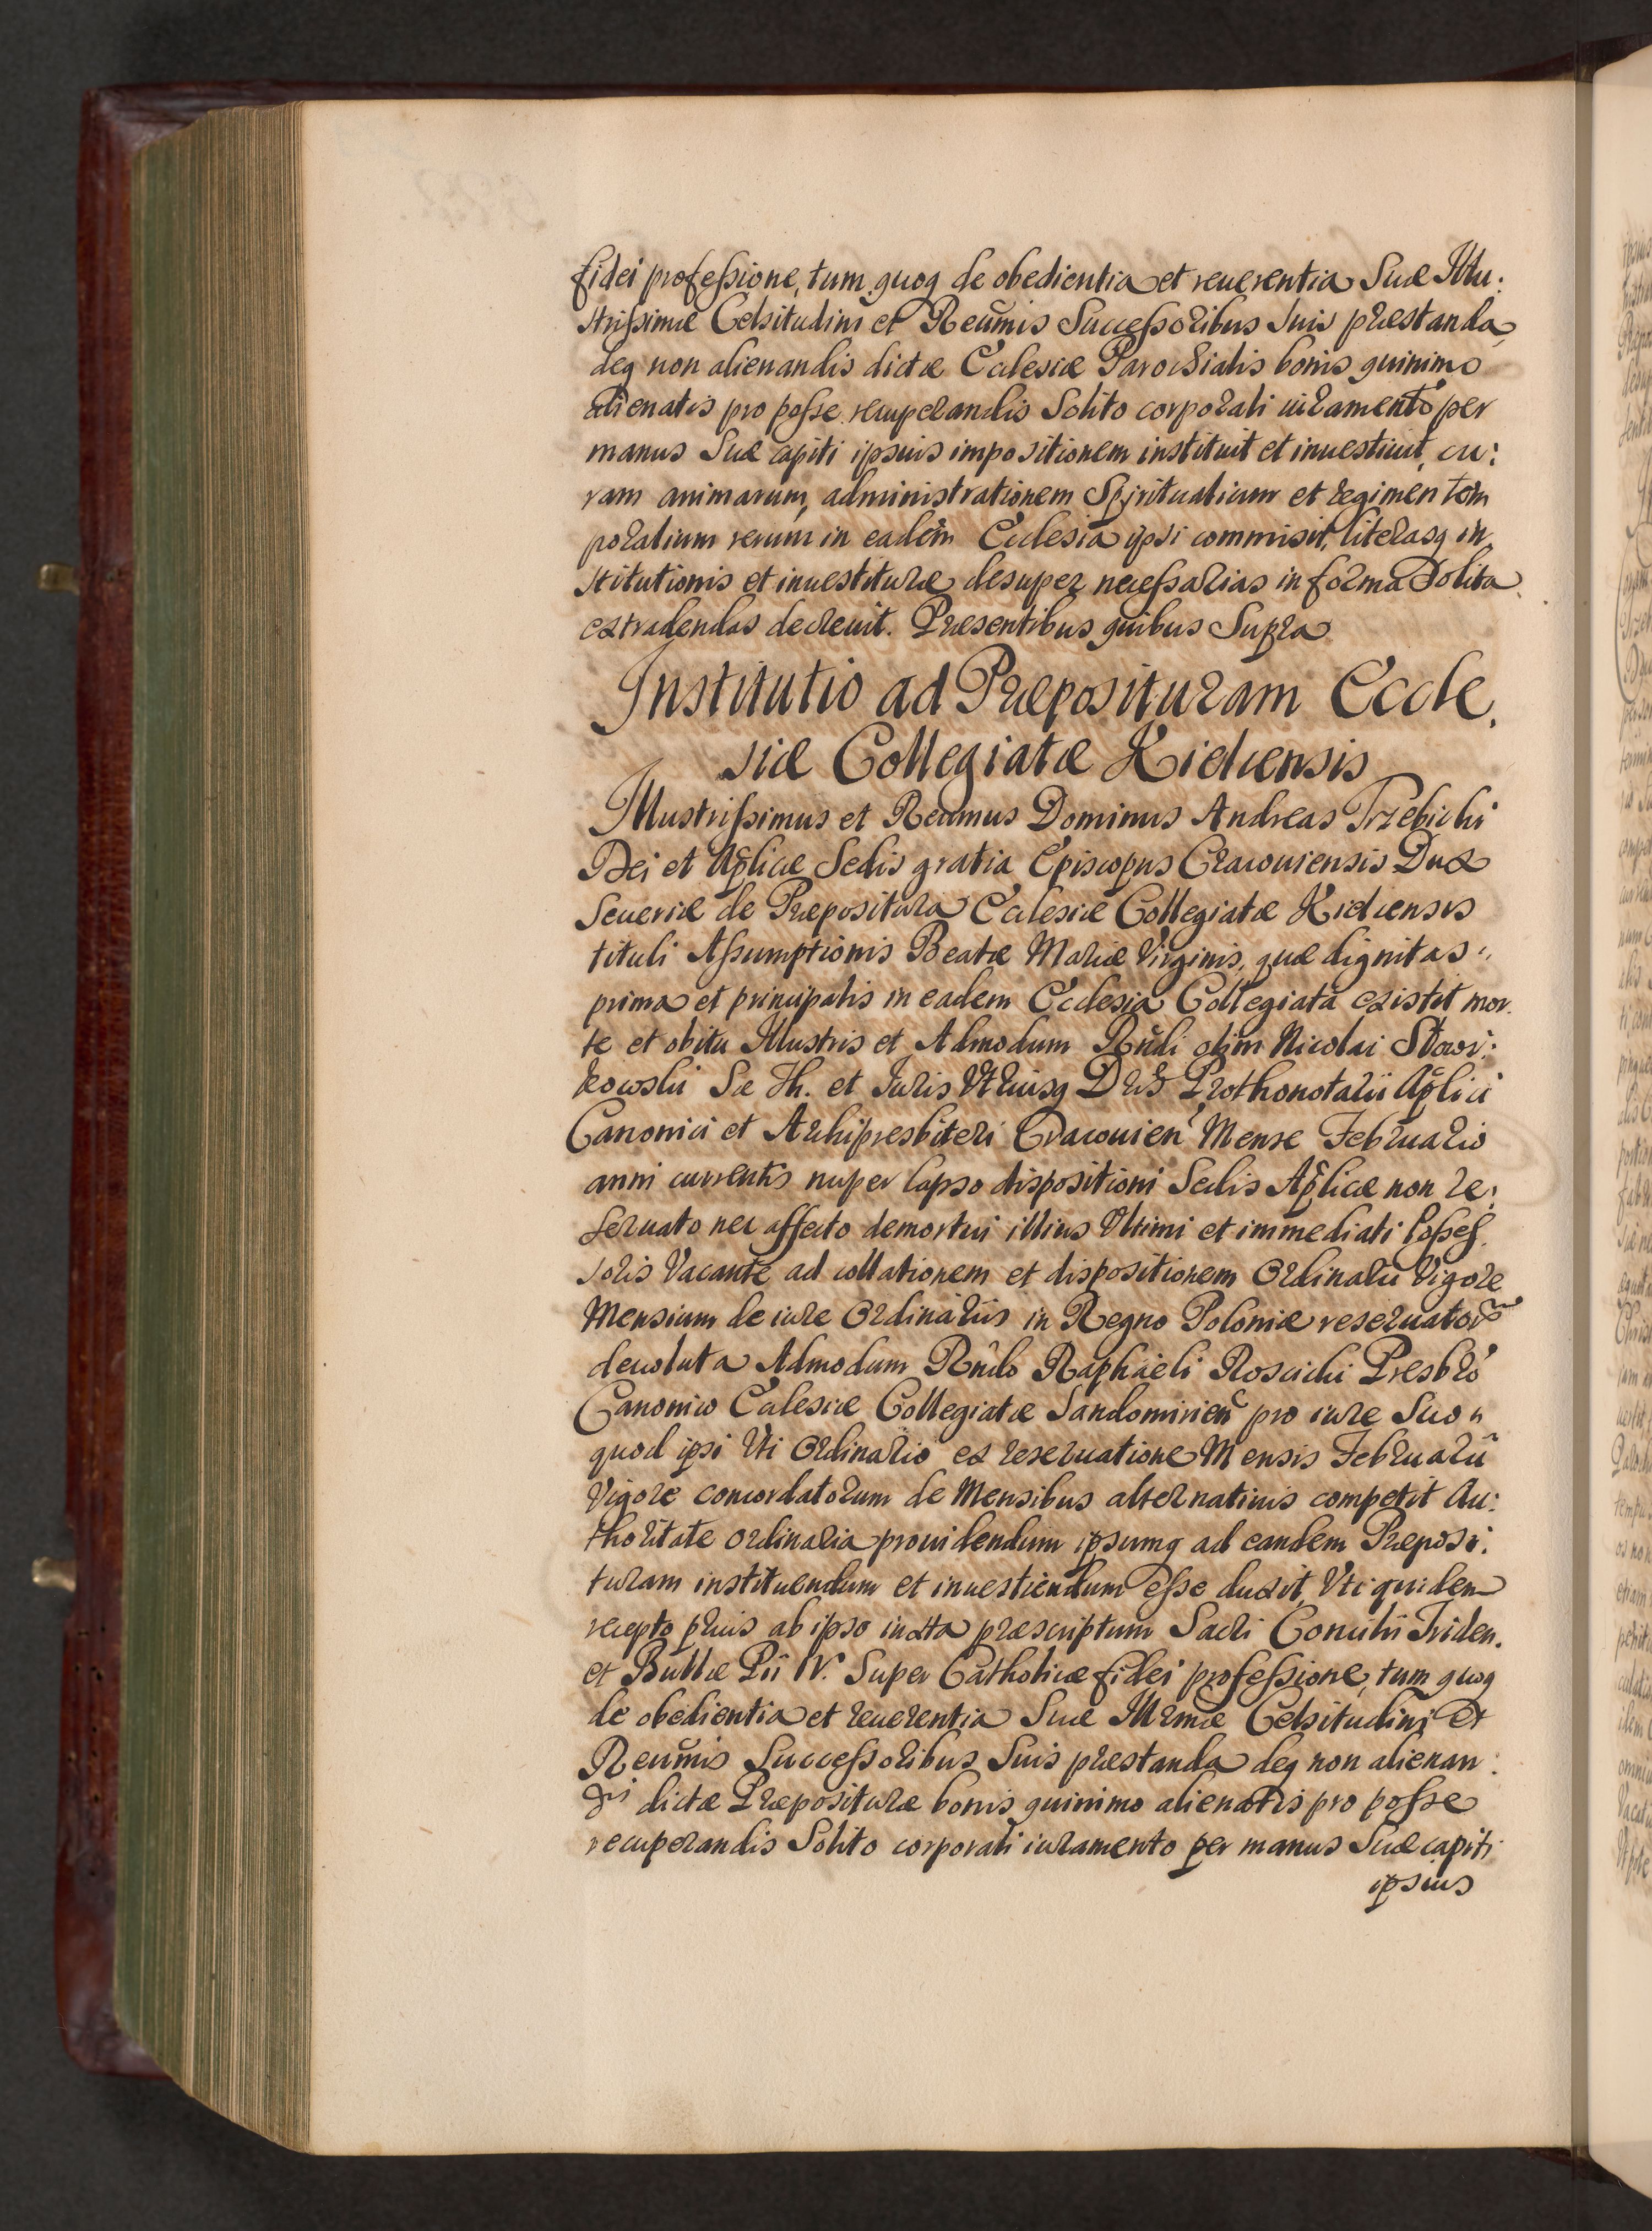 fidei professione, tum quoq de obedientia et reuerentia Suæ Illu:
strissimæ Celsitudini et Reũmis Successoribus Suis præstanda,
deq non alienandis dictæ Ecclesiæ Parochialis bonis quinimo
alienatis pro posse recuperandis Solito corporali iuramento per
manus Suæ capiti ipsuis impositionem instituit et inuestiuit, cu:
ram animarum, administrationem Spirituatium et regimen tem
poralium rerum in eadem Ecclesia ipsi commisit, literasq in
stitutionis et inuestituræ desuper necessarias in forma Solita
extradendas decreuit. Præsentibus quibus Supra
Institutio ad Præposituram Eccle.
siæ Collegiatæ Kielcensis
Illustrissimus et Reũmus Dominus Andreas Trzebicki
Dei et Aplicæ Sedis gratia Episcopus Cracouiensis Dux
Seueriæ de Præpositura Ecclesiæ Collegiatæ Kielcensis
tituli Assumptionis Beatæ Mariæ Virginis, quæ dignitas
prima et principalis in eadem Ecclesia Collegiata existit mor
te et obitu Illustris et Admodum Rñdi olim Nicolai Stowi:
kowski Sæ Th. et Iuris Vtriusq Dris Prothonotarii Aplici
Canonici et Archipresbiteri Cracouien Mense Februario
anni currentis nuper lapso dispositioni Sedis Aplicæ non re:
seruato nec affecto demortui illius Vltimi et immediati Posses
soris Vacante ad collationem et dispositionem Ordinarii Vigore
Mensium de iure Ordinariis in Regno Poloniæ reseruator
deuoluta Admodum Rñdo Raphaeli Roscicki Presbro
Canonico Ecclesiæ Collegiatæ Sandomirien pro iure Suo
quod ipsi Vti Ordinario ex reseruatione Mensis Februarii
Vigore concordatorum de Mensibus alternatiuis competit Au:
thoritate ordinaria prouidendum ipsumq ad eandem Præposi:
turam instituendum et inuestiendum esse duxit, Vti quidem
recepto prius ab ipso iuxta præscriptum Sacri Concilii Triden.
et Bullæ Pii IV. Super Catholicæ fidei professione, tum quoq
de obedientia et reuerentia Suæ Illrmæ Celsitudini et
Reũmis Successoribus Suis præstanda deq non alienan:
dis dictæ Præpositura bonis quinimo alienatis pro posse
recuperandis Solito corporali iuramento per manus Suæ capiti
ipsius